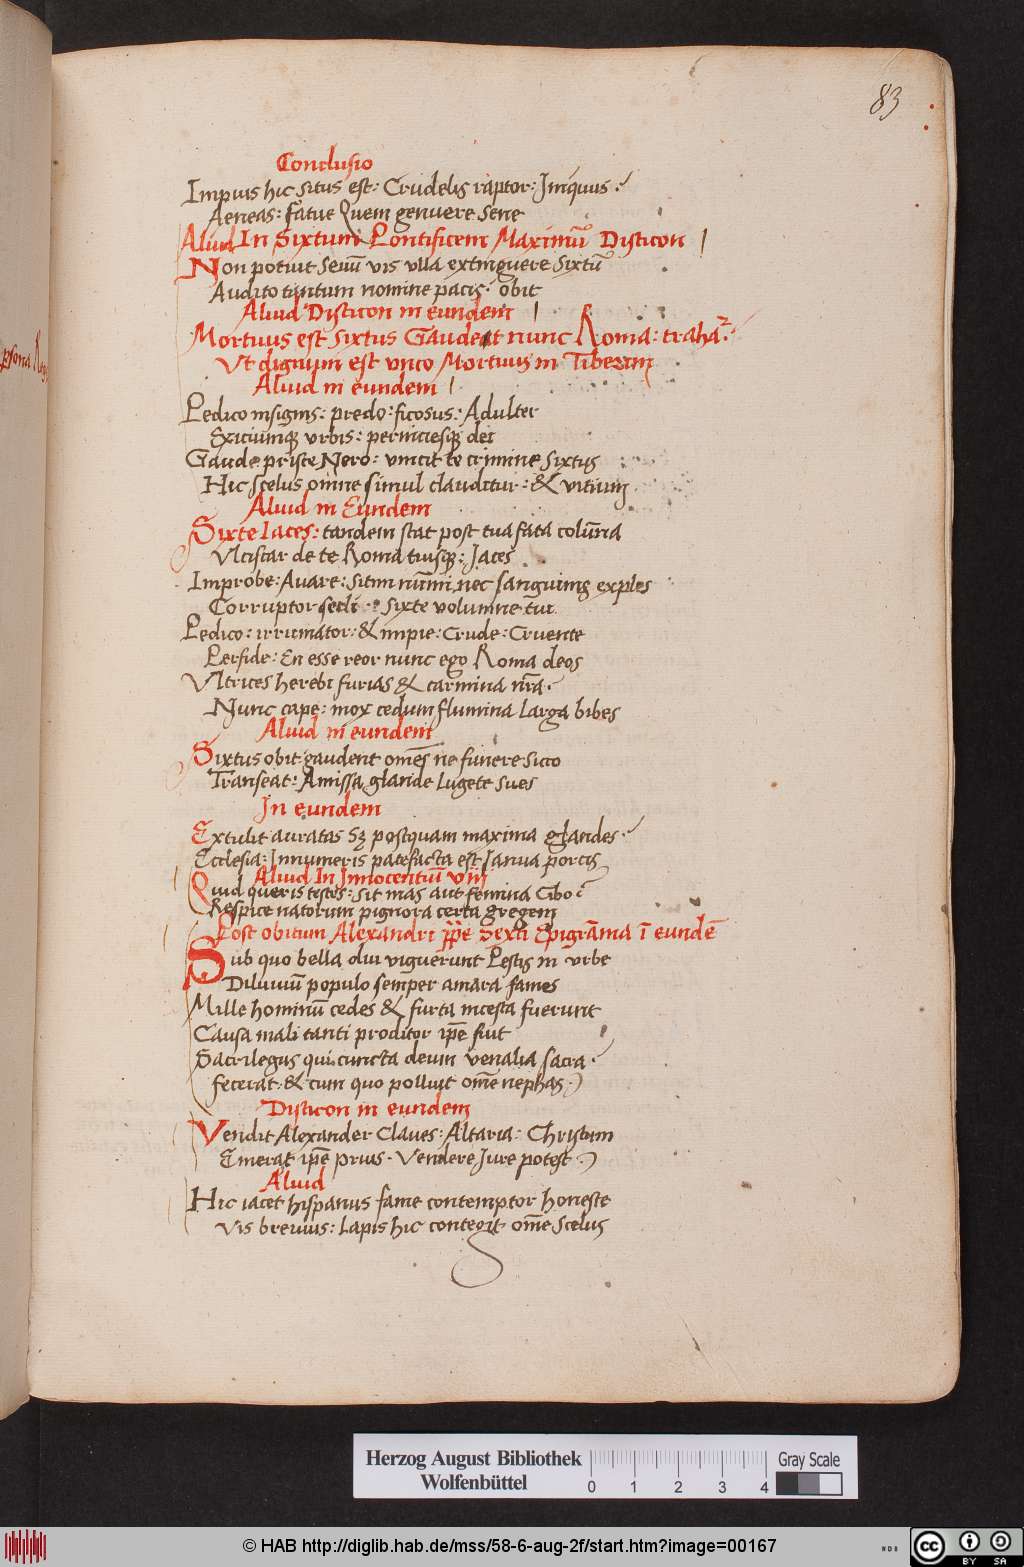 83
Conclusio
Impius hic situs est: Crudelis raptor: Iniquus ·
Aeneas: fatue Quem genuere sene
Aliud In Sixtum Pontificem Maximū Disticon
Non potuit seuū vis vlla extinguere Sixtū
Audito tantum nomine pacis · obit
Aliud Disticon in eundem
Mortuus est Sixtus Gaudeat nunc Roma: traha
Vt dignum est vnco Mortuus in Tiberim
Aliud in eundem
Pedico insignis: predo: ficosus: Adulter
Exitiumq vrbis: perniciesq dei
Gaude prisce Nero: vincit te crimine Sixtus
Hic scelus omne simul clauditur: & vitium
Aliud in Eundem
Sixte Iaces: tandem stat post tua fata colūna
Vlciscar de te Roma tuisq: Jaces
Improbe: Auare: sitim nūmi nec sanguinis exples
Corruptor secli: Sixte volumne tui
Pedico: irrumator: & impie: Crude: Cruente
Perfide: En esse reor nunc ego Roma deos
Vltrices herebi furias & carmina nr̄a ·
Nunc cape: mox cedum flumina larga bibes
Aliud in eundem
Sixtus obit gaudent om̄es ne funere sicco
Transeat: Amissa glande lugete sues
In eundem
Extulit auratas Sz postquam maxima glandes ·
Ecclesia: Innumeris patefacta est Ianua porcis
Aliud In Innocentiū viij
Quid queris testes: sit mas aut femina Cibo
Respice natorum pignora certa gregem
Post obitum Alexandri pp̄e Sexti Epigrāma ī eundē
Sub quo bella diu viguerunt Pestis in vrbe
Diluuiū populo semper amara fames
Mille hominū cedes & furta incesta fuerunt
Causa mali tanti proditor ip̄e fuit
Sacrilegus qui cuncta deum venalia sacra ·
fecerat · & cum quo polluit om̄e nephas ·
Disticon in eundem
Vendit Alexander Claues: Altaria: Christum
Emerat ip̄e prius · Vendere Iure potest ·
Aliud
Hic iacet hispanus fame contemptor honeste
Vis breuius: Lapis hic contegit om̄e scelus
Herzog August Bibliothek
Wolfenbüttel
0 1 2 3 4
Gray Scale
© HAB http://diglib.hab.de/mss/58-6-aug-2f/start.htm?image=00167
cc BY SA